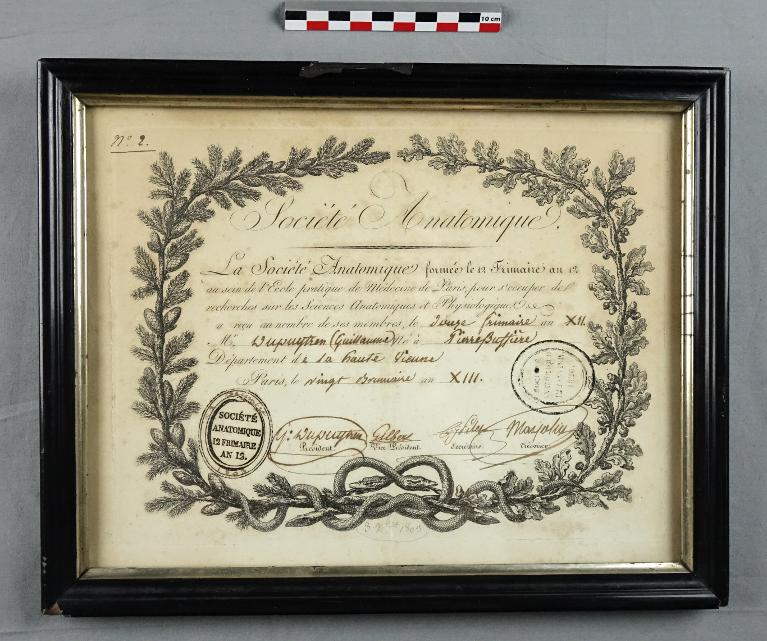 10 cm
Nº 2.
Société Anatomique.
La Société Anatomique formée le 12 Frimaire an 12
au sein de l'Ecole pratique de Médecine de Paris, pour s'occuper de
recherches sur les Sciences Anatomiques et Physiologiques
a reçu au nombre de ses membres, le douze frimaire an XII.
Mr. Dupuytren (Guillaume) Né à PierreBuffière
Département de la haute vienne
Paris, le vingt Brumaire an XIII.
SOCIÉTÉ
ANATOMIQUE
12 FRIMAIRE
AN 12.
G. Dupuytren
Président
Vice Président
Secrétaire
Marjolin
Trésorier